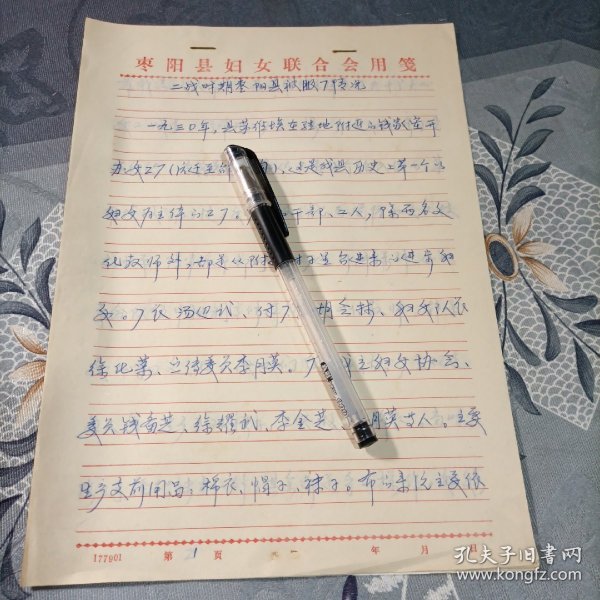 枣阳县妇女联合会用笺
二战时期枣阳县被服厂情况
一九三〇年,县苏维埃在驻地附近的钱家堂开
办女工厂(后迁至),这是我县历史上第一个以
妇女为主体的工厂。干部、工人,除两名文
化教师外,都是从附近村子里召进来的进步妇
女。厂长汤、付厂胡金、妇女队长
徐、宣传委员李月英。厂妇女协会、
委员钱香芝、徐、李金芝、月英等人。主要
生产支前用品:棉衣、帽子、袜子。布的来源主要依
177901 第1页 年 月 日
孔夫子旧书网
www.kongfz.com